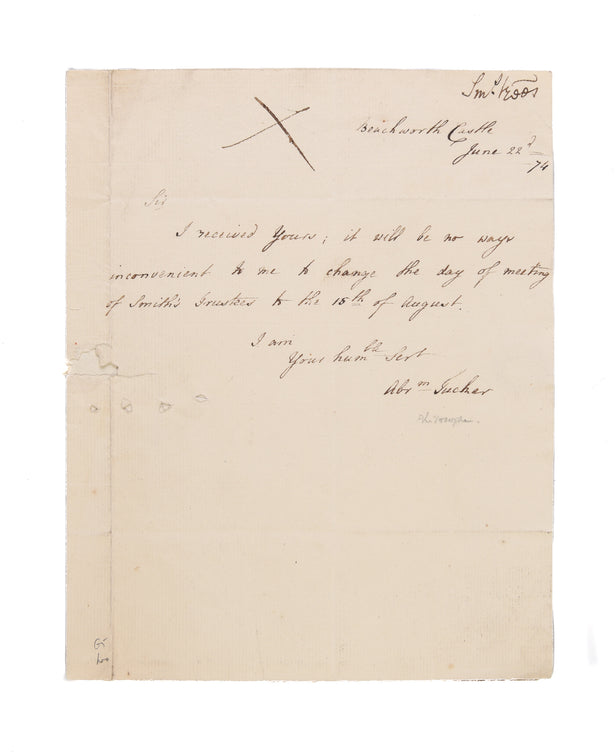 Beachworth Castle
June 22d
/74
Sir
I received Yours; it will be no ways
inconvenient to me to change the day of meeting
of Smith's Trustees to the 15th of August.
I am
Your humble Sert
Abrm Tucker